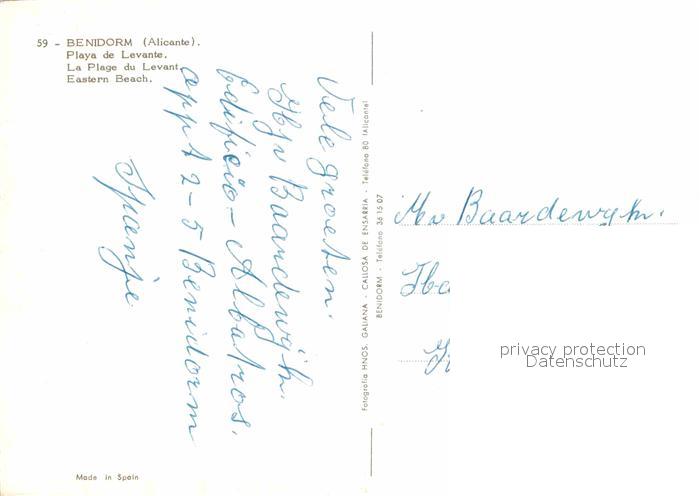 59 - BENIDORM (Alicante).
Playa de Levante.
La Plage du Levant.
Eastern Beach.
Vele groeten.
Baardewijk.
Edificio - Albatros.
appt 2-5 Benidorm
Spanje
Fotografia HNOS. GALIANA - CALLOSA DE ENSARRIA - Teléfono 80 (Alicante)
BENIDORM - Teléfono 36 15 07
Baardewijk.
privacy protection
Datenschutz
Made in Spain